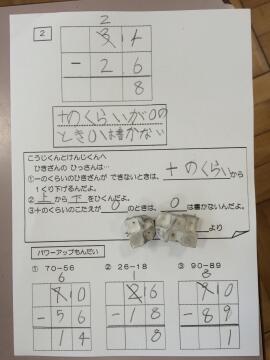 2
2
3 4
- 2 6
8
十のくらいが0の
とき0は書かない
こうじくんとけんじくんへ
ひきざんの ひっさんは…
①一のくらいのひきざんが できないときは、十のくらいから
1くり下げるんだよ。
②上から下をひくんだよ。
③十のくらいのこたえが 0 のときは、0 は書かないんだよ。
より
パワーアップもんだい
① 70-56 ② 26-18 ③ 90-89
6 1 8
7 0 2 6 9 0
- 5 6 - 1 8 - 8 9
1 4 8 1